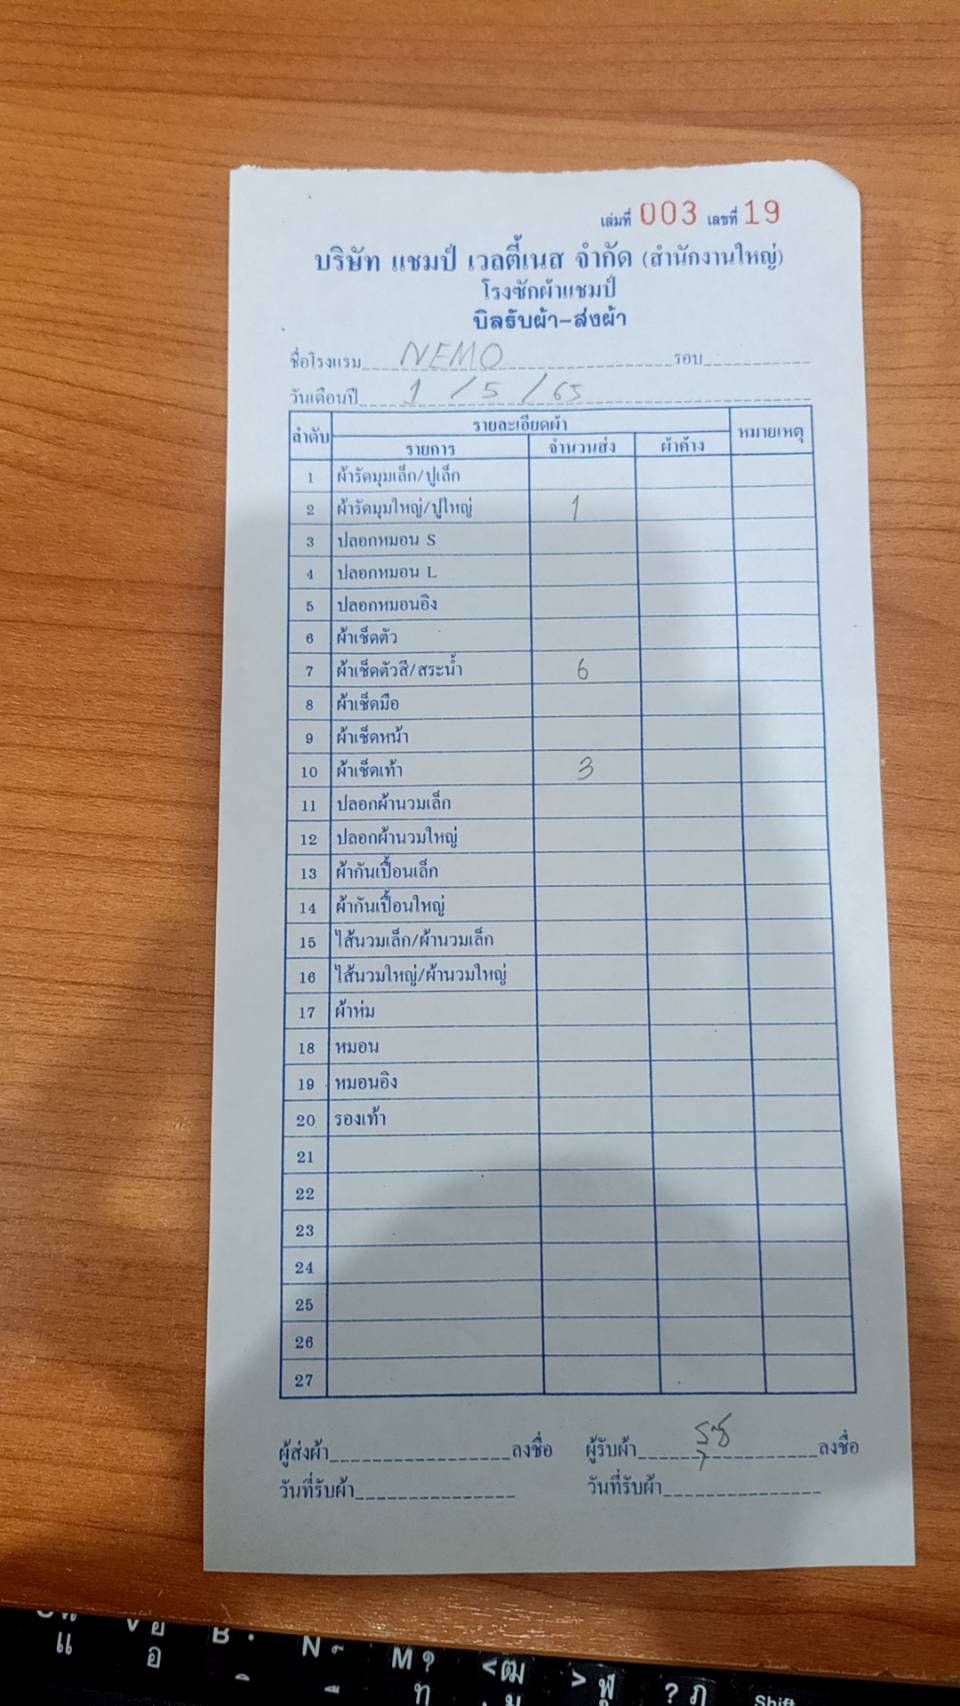 เล่มที่ 003 เลขที่ 19
บริษัท แชมป์ เวลตี้เนส จำกัด (สำนักงานใหญ่)
โรงซักผ้าแชมป์
บิลรับผ้า-ส่งผ้า
ชื่อโรงแรม NEMO รอบ
วันเดือนปี 1 / 5 / 65
ลำดับ รายละเอียดผ้า หมายเหตุ
รายการ จำนวนส่ง ผ้าค้าง
1 ผ้ารัดมุมเล็ก/ปูเล็ก
2 ผ้ารัดมุมใหญ่/ปูใหญ่ 1
3 ปลอกหมอน S
4 ปลอกหมอน L
5 ปลอกหมอนอิง
6 ผ้าเช็ดตัว
7 ผ้าเช็ดตัวสี/สระน้ำ 6
8 ผ้าเช็ดมือ
9 ผ้าเช็ดหน้า
10 ผ้าเช็ดเท้า 3
11 ปลอกผ้านวมเล็ก
12 ปลอกผ้านวมใหญ่
13 ผ้ากันเปื้อนเล็ก
14 ผ้ากันเปื้อนใหญ่
15 ไส้นวมเล็ก/ผ้านวมเล็ก
16 ไส้นวมใหญ่/ผ้านวมใหญ่
17 ผ้าห่ม
18 หมอน
19 หมอนอิง
20 รองเท้า
21
22
23
24
25
26
27
ผู้ส่งผ้า ลงชื่อ ผู้รับผ้า ลงชื่อ
วันที่รับผ้า วันที่รับผ้า
แ อ B N M ? ท < ฒ > ฬ ? ฦ Shift